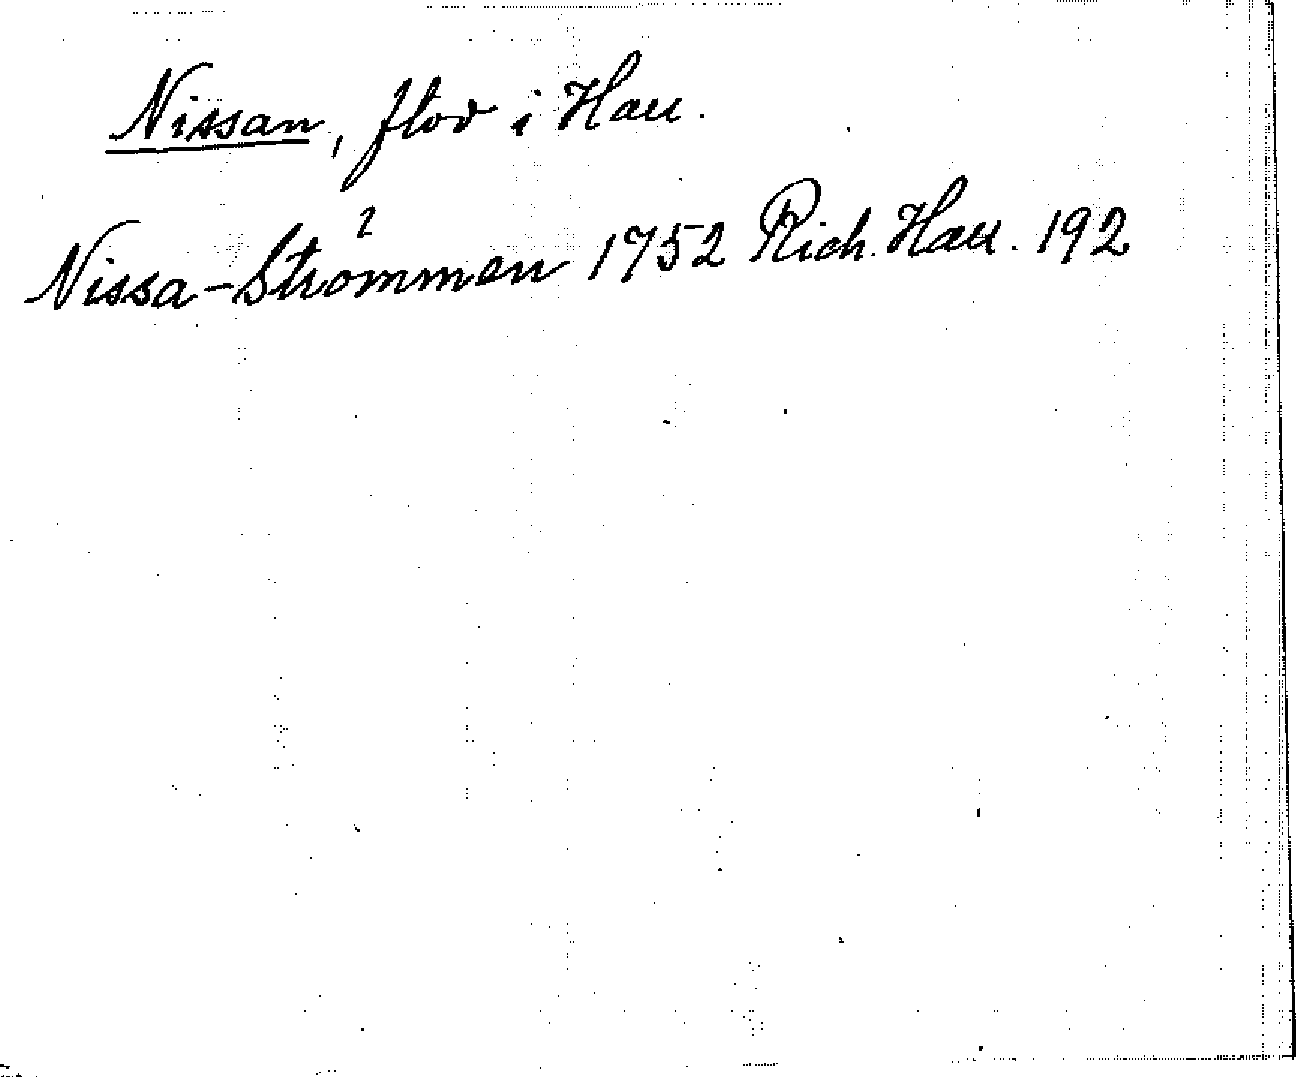 Nissan, flod i Hall.
Nissa-Stroͤmmen 1752 Rich. Hall. 192